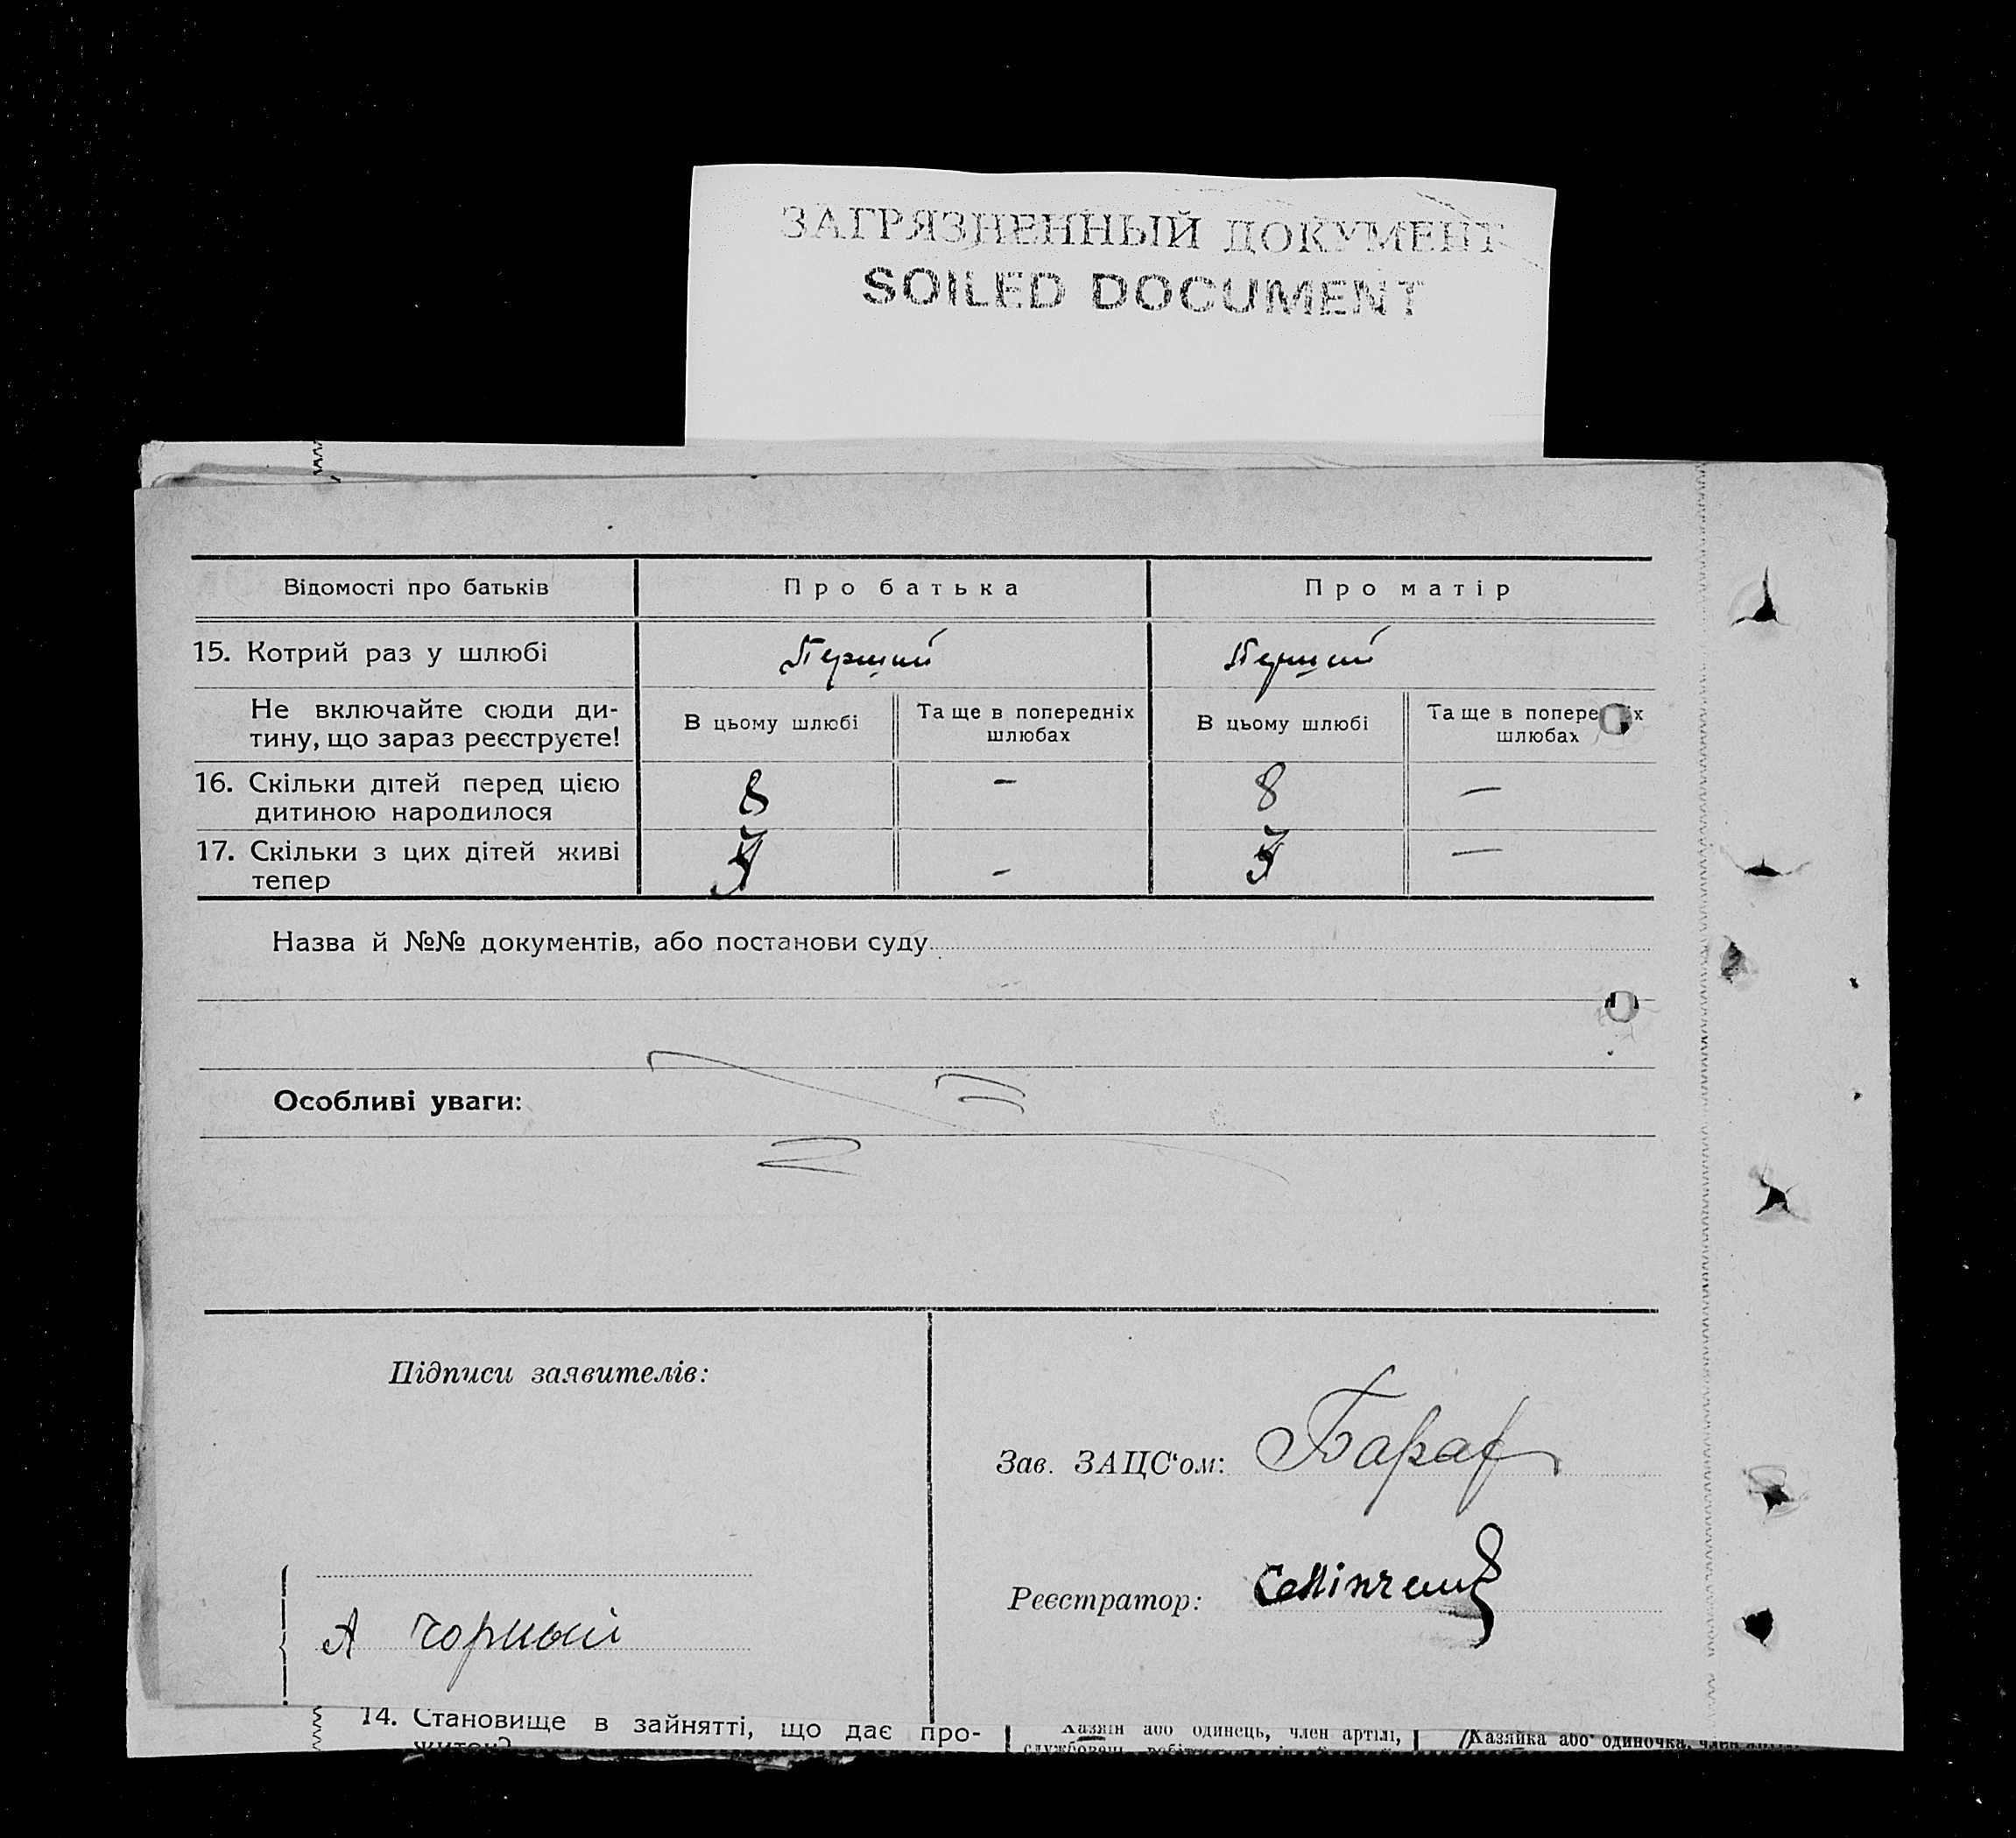 ЗАГРЯЗНЕННЫЙ ДОКУМЕНТ
SOILED DOCUMENT
Відомості про батьків Про батька Про матір
15. Котрий раз у шлюбі Перший Перший
Не включайте сюди ди-
тину, що зараз реєструєте!
В цьому шлюбі Та ще в попередніх шлюбах В цьому шлюбі Та ще в попередніх шлюбах
16. Скільки дітей перед цією
дитиною народилося 8 – 8 –
17. Скільки з цих дітей живі
тепер – –
Назва й №№ документів, або постанови суду
Особливі уваги:
Підписи заявителів:
Зав. ЗАЦС‘ом:
Реєстратор:
А Чорный
14. Становище в зайнятті, що дає про-
житок?
Хазяїн або одинець, член артілі,
Хазяйка або одиночка, член